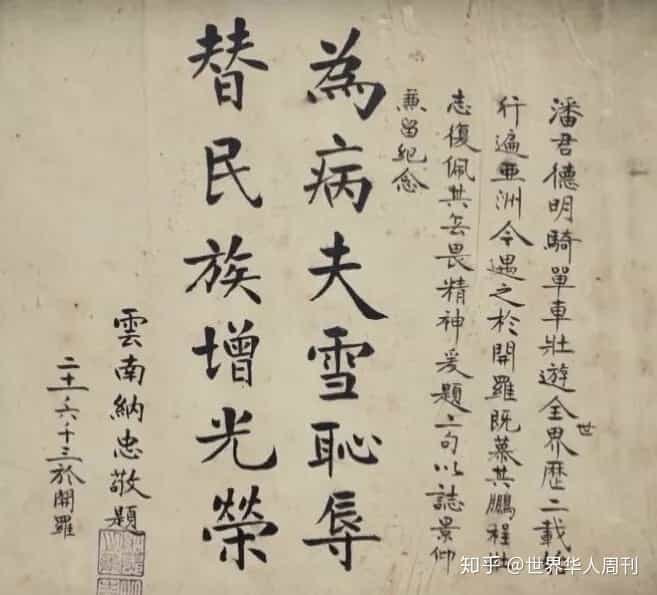 潘君德明騎單車壯遊全世界歷二載始
行遍亞洲今遇之於開羅既慕其鵬程壯
志復佩其無畏精神爰題二句以誌景仰
兼留紀念
為病夫雪恥辱
替民族增光榮
雲南納忠敬題
二十一、六、十三於開羅
知乎 @世界华人周刊